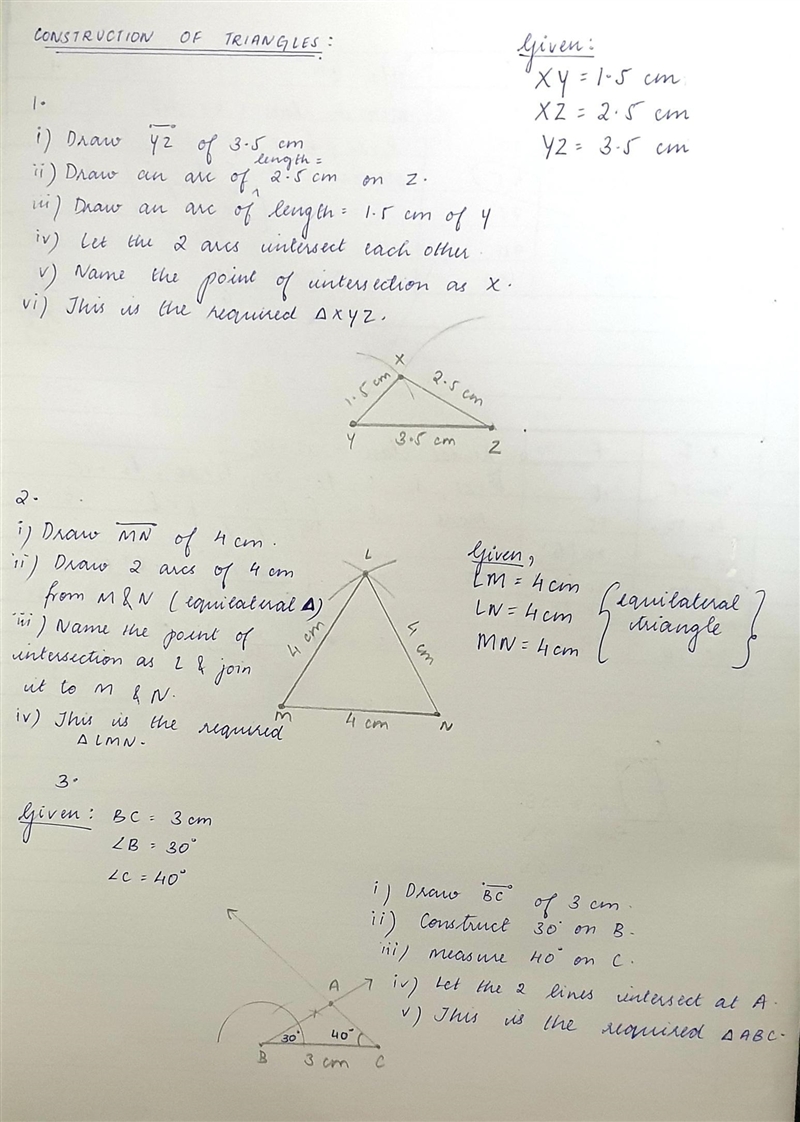 CONSTRUCTION OF TRIANGLES:
Given:
XY = 1.5 cm
XZ = 2.5 cm
YZ = 3.5 cm
1.
i) Draw YZ of 3.5 cm
ii) Draw an arc of length = 2.5 cm on Z.
iii) Draw an arc of length = 1.5 cm of Y
iv) Let the 2 arcs intersect each other.
v) Name the point of intersection as X.
vi) This is the required ΔXYZ.
X
1.5 cm
2.5 cm
Y
3.5 cm
Z
2.
i) Draw MN of 4 cm.
ii) Draw 2 arcs of 4 cm
from M & N (equilateral Δ)
iii) Name the point of
intersection as L & join
it to M & N.
iv) This is the required
ΔLMN.
L
4 cm
4 cm
M
4 cm
N
Given,
LM = 4 cm
LN = 4 cm
MN = 4 cm
{equilateral
triangle}
3.
Given: BC = 3 cm
∠B = 30°
∠C = 40°
i) Draw BC of 3 cm.
ii) Construct 30° on B.
iii) Measure 40° on C.
iv) Let the 2 lines intersect at A.
v) This is the required ΔABC.
A
30°
40°
B
3 cm
C